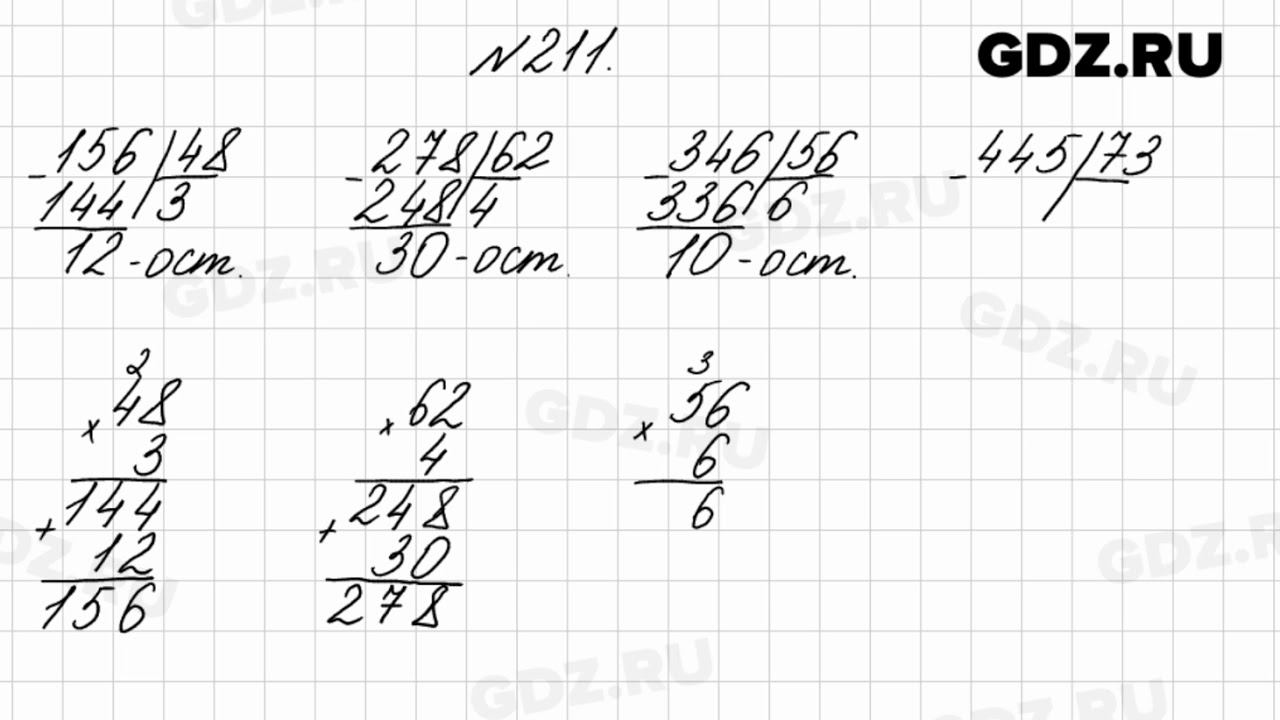 №211.
GDZ.RU
-156 48 -278 62 -346 56 -445 73
144 3 248 4 336 6
12-ост. 30-ост. 10-ост.
2 3
×48 ×62 ×56
3 4 6
144 248 6
+12 +30
156 278
GDZ.RU
GDZ.RU
GDZ.RU
GDZ.RU
GDZ.RU
GDZ.RU
GDZ.RU